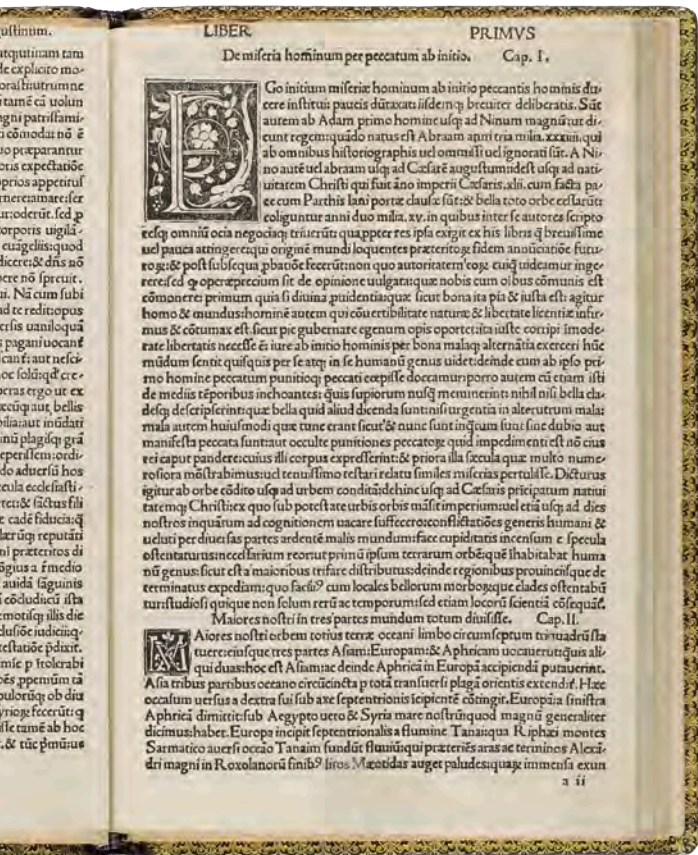 ustinum.
atq;utinam tam
de explicito mo-
oras:utrumne
tamē cā uolun
agni patrisfami-
cōmodat nō ē
uo præparantur
oris expectatiōe
prios appetituſ
rnere:amare:ser
ur:oderūt.sed p
orporis uigilā-
euāgeliis:quod
dicere:& dñs nō
ere nō spreuit.
ui. Nā cum subi
ad te redit:opus
ersis uaniloquā
s pagani uocanť
canť:aut nesci-
oc solū:qď cre-
peras ergo ut ex
aut bellis
bilia:aut inūdati
inū plagisq; grā
eperissem:ordi-
do aduersū hos
cula ecclesiasti-
ret:& sāctus fili
e cadē fiducia:q
lærūq; reputāti
ni præteritos di
ōgius a remedio
auidā sāguinis
cōdudicū ista
emotisq; illis die
dusiōe iudicii:q-
estatiōe pdixit.
imie p ītolerabi
ppēnum tā
pulorūq; ob diu
yriog fecerūt:q
isse tamē ab hoc
.& tūc pmū:us
LIBER PRIMVS
De miseria hominum per peccatum ab initio. Cap. I.
E Go initium miseriæ hominum ab initio peccantis hominis du-
cere institui: paucis dūtaxat: iisdemq; breuiter deliberatis. Sūt
autem ab Adam primo homine usq; ad Ninum magnū:ut di-
cunt regem:quādo natus est Abraam anni tria milia.xxxiiii.qui
ab omnibus historiographis uel ommissi uel ignorati sūt. A Ni-
no autē uel abraam usq; ad Cæsarē augustum:idest usq; ad nati-
uitatem Christi qui fuit āno imperii Cæsaris.xlii. cum facta pa-
ce cum Parthis Iani portæ clausæ sūt:& bella toto orbe cessarūt:
coliguntur anni duo milia.xv.in quibus inter se autores scripto
resq; omniū ocia negociaq; triuerūt:quappter res ipsa exigit ex his libris q breuissime
uel pauca attingere:qui originē mundi loquentes præteritoꝝ fidem annūciatiōe futu-
roꝝ:& post subsequa pbatiōe fecerūt:non quo autoritatem eoꝝ cuiq̄ uideamur inge-
rere:sed q operæprecium sit de opinione uulgata:quæ nobis cum oibus cōmunis est
cōmonere: primum quia si diuina puidentia:quæ sicut bona ita pia & iusta est: agitur
homo & mundus:hominē autem qui cōuertibilitate naturæ & libertate licentiæ infir-
mus & cōtumax est:sicut pie gubernare egenum opis oportet:ita iuste corripi īmode-
rate libertatis necesse ē: iure ab initio hominis per bona malaq; alternātia exerceri hūc
mūdum sentit quisquis per se atq; in se humanū genus uidet:deinde cum ab ipso pri-
mo homine peccatum punitioq; peccati cœpisse doceamur:porro autem cū etiam isti
de mediis tēporibus inchoantes: q̄uis supiorum nusq̄ meminerint: nihil nisi bella cla-
desq; descripserint:quæ bella quid aliud dicenda sunt:nisi urgentia in alterutrum mala:
mala autem huiusmodi quæ tunc erant sicut & nunc sunt inq̄tum sunt sine dubio aut
manifesta peccata sunt:aut occulte punitiones peccatoꝝ quid impedimenti est nō eius
rei caput pandere:cuius illi corpus expresserint:& priora illa sæcula quæ multo nume-
rosiora mōstrabimus:uel tenuissimo testari relatu similes miserias pertulisse. Dicturus
igitur ab orbe cōdito usq; ad urbem conditā:dehinc usq; ad Cæsaris pricipatum natiui
tatemq; Christi:ex quo sub potestate urbis orbis māsit imperium:uel etiā usq; ad dies
nostros inquārum ad cognitionem uacare suffecero:conflictatiōes generis humani &
ueluti per diuersas partes ardentē malis mundum:face cupiditatis incensum e specula
ostentaturus:necessarium reor:ut primū ipsum terrarum orbē:quē īhabitabat huma
nū genus:sicut est a maioribus trifare distributus:deinde regionibus prouinciisque de
terminatus expediam:quo facili⁹ cum locales bellorum morboꝝque clades ostentabū
tur:studiosi quique non solum rerū ac temporum:sed etiam locorū scientiā cōsequāť.
Maiores nostri in tres partes mundum totum diuisisse. Cap.II.
M Aiores nostri orbem totius terræ oceani limbo circumseptum triquadrū sta
tuere:eiusque tres partes Asiam:Europam:& Aphricam uocauerut:quis ali-
qui duas:hoc est Asiam:ac deinde Aphricā in Europā accipiendā putauerint.
Asia tribus partibus oceano circūcincta p totā transuersi plagā orientis extendiť. Hæc
occasum uersus a dextra sui sub axe septentrionis icipientē cōtingit. Europā:a sinistra
Aphricā dimittit:sub Aegypto uero & Syria mare nostrū:quod magnū generaliter
dicimus:habet. Europa incipit septentrionalis a flumine Tanai:qua Riphæi montes
Sarmatico auersi oceāo Tanaim fundūt fluuiū:qui præteriēs aras ac terminos Alexā-
dri magni in Roxolanorū finib⁹ sitos Mæotidas auget paludes:quaꝝ immensa exun
a ii